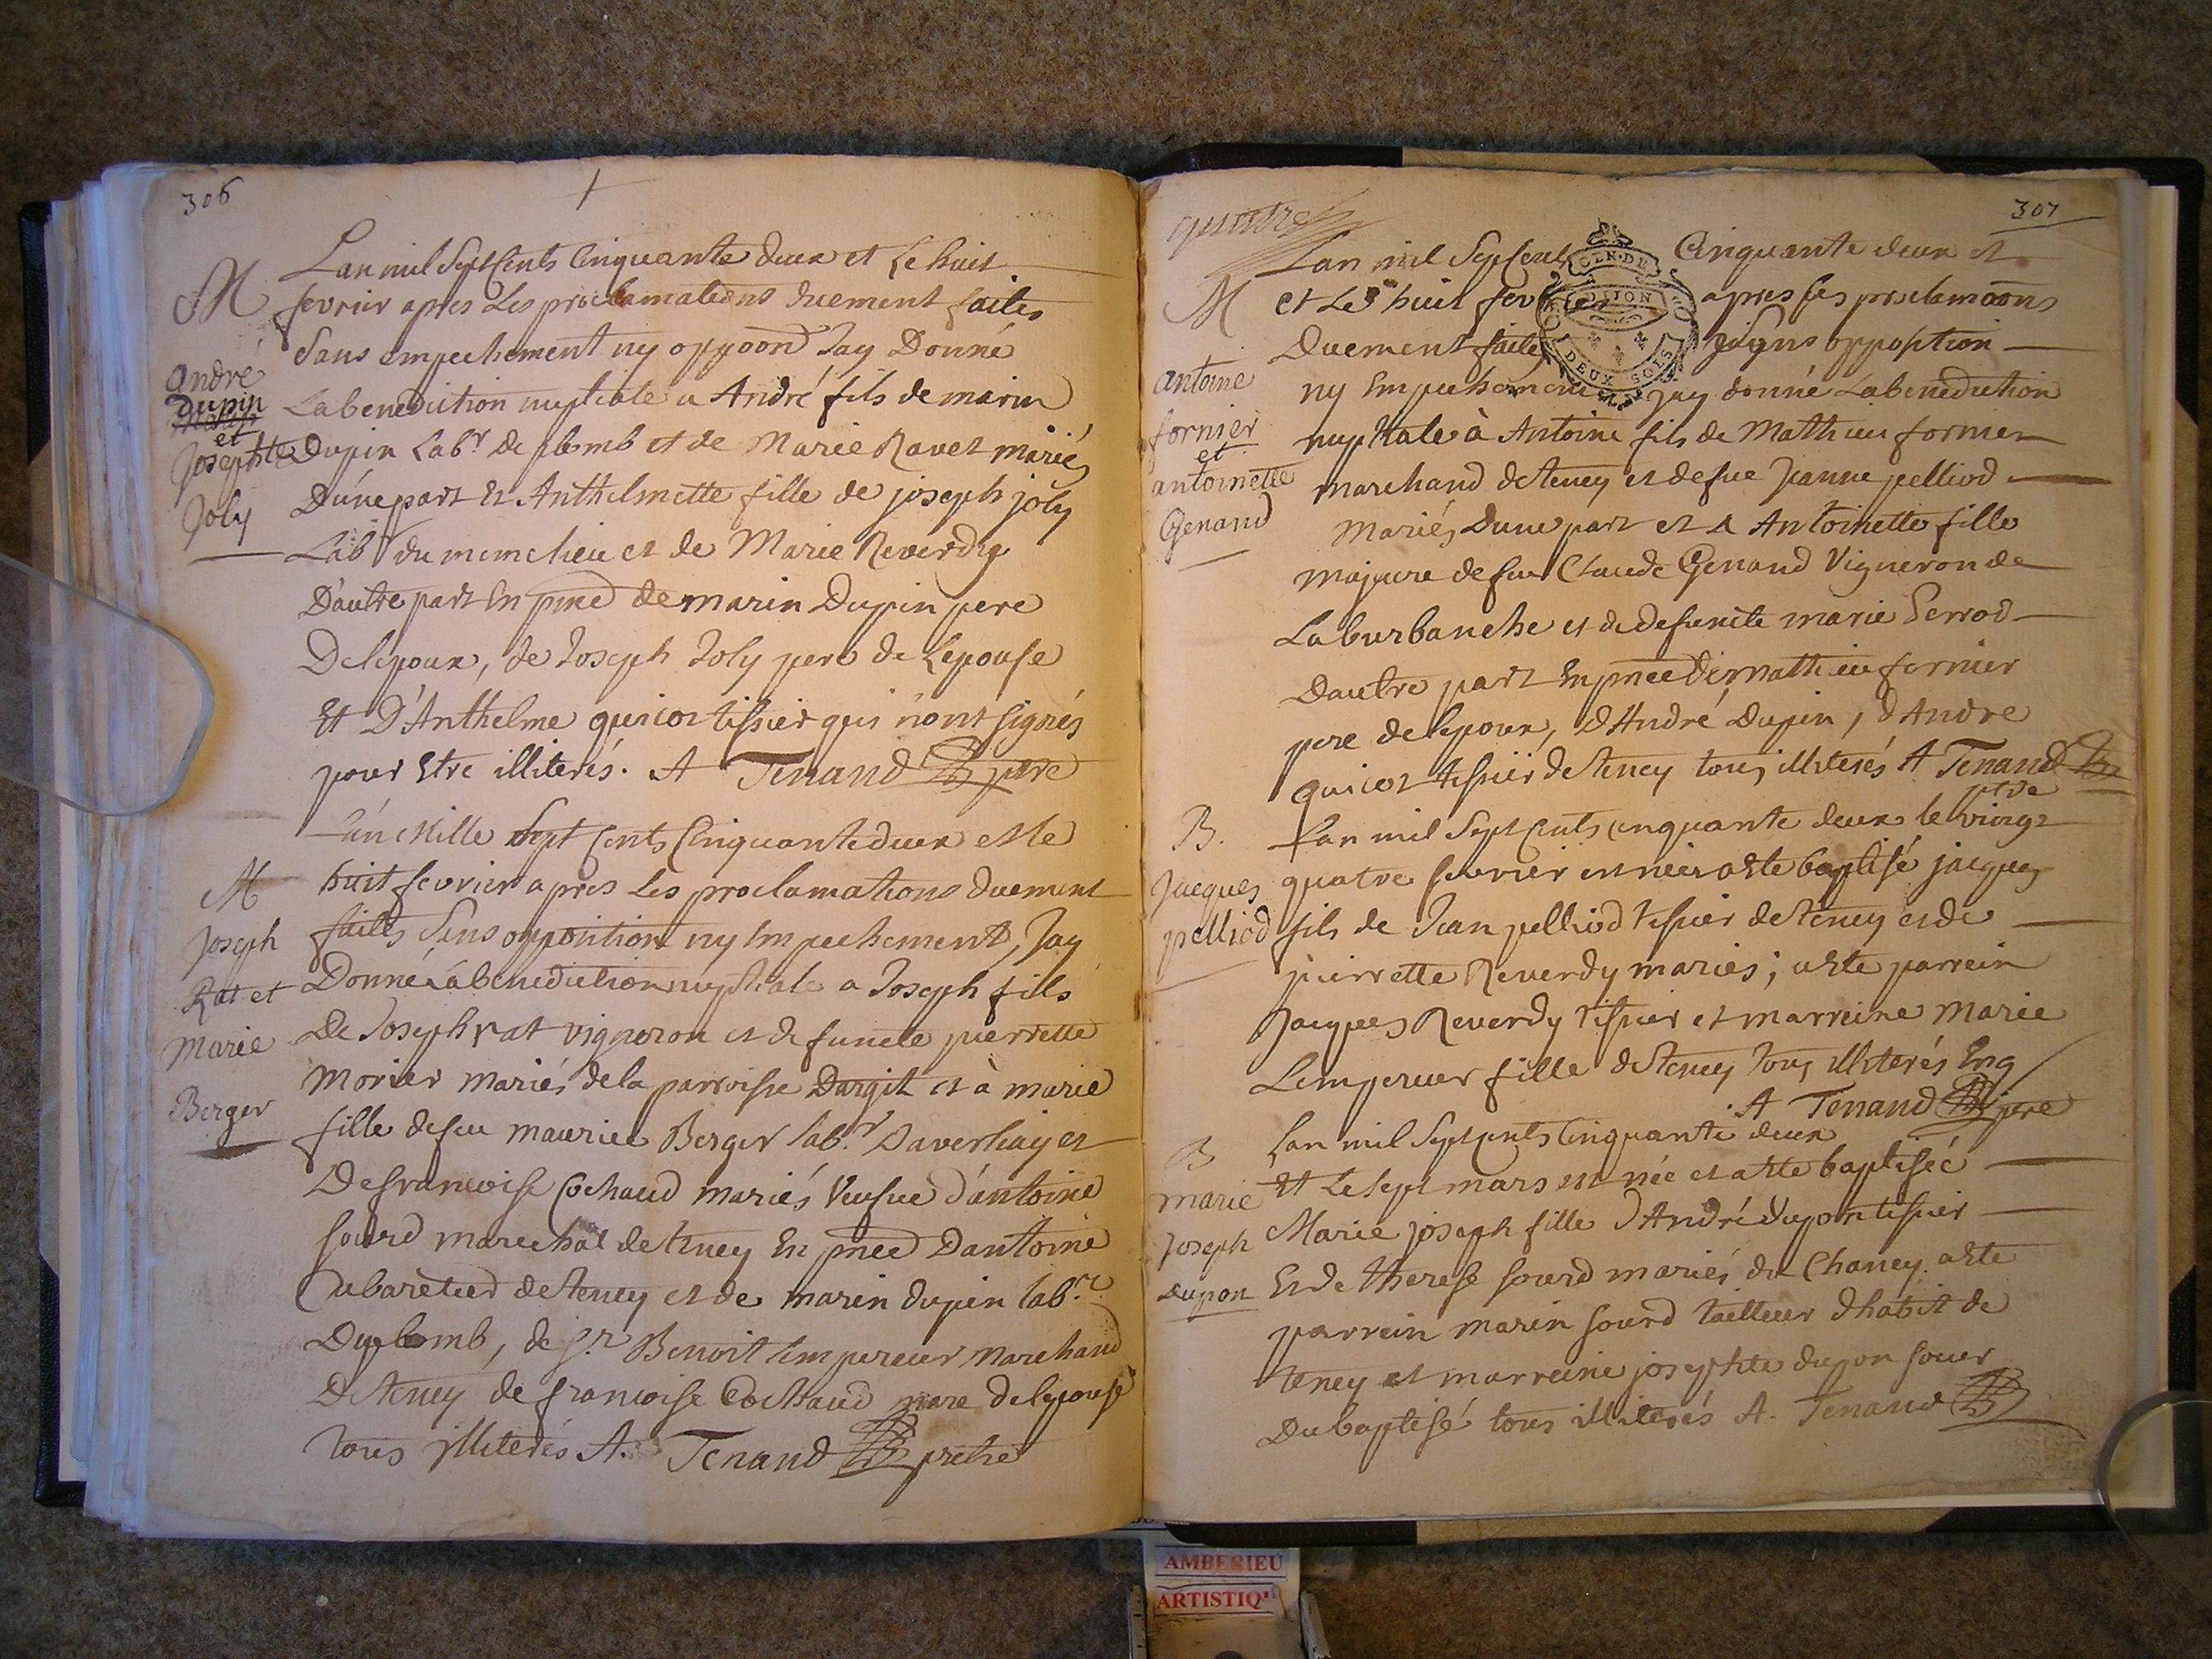 306
Lan mil Sept Cents Cinquante deux et Le huit
M
fevrier apres Les proclamations duement faites
Sans empechement ny oppoon Jay Donné
André
Dupin
et
Josephte
Joly
La benediction nuptiale a André fils de marin
Dupin Labr de plomb et de Marie Ravet mariés
D'une part Et Anthelmette fille de joseph joly
Labr du meme lieu et de Marie Reverdy
D'autre part En pnce de marin Dupin pere
De lepoux, de Joseph Joly pere de Lepouse
Et D'Anthelme quicot tissier qui n'ont signés
pour Estre illiterés. A Tenand ptre
L'an Mille Sept Cents Cinquante deux et le
M
Joseph
Rat et
Marie
Berger
huit fevrier apres Les proclamations duement
faites Sens opposition ny Empechement, Jay
Donné la benediction nuptiale a Joseph fils
De Joseph rat vigneron et defunete pierrette
Morier mariés de la parroisse Dargit et à marie
fille de feu maurice Berger labr. Daverliay et
De francoise Cochaud mariés Veufue d'antoine
sourd marechal de teney En pnce Dantoine
Cabaretier de Teney et de marin dupin labr.
Du plomb, de Sr. Benoit Lempereur Marchand
De teney de francoise Cochaud mere de lepouse
Tous illiterés A. Tenand prêtre
307
Lan mil Sept Cent Cinquante deux et
M
et Le huit fevrier apres les proclamaons
Duement faites Sens opposition
GEN. DE
DIJON
DEUX SOLS
antoine
fornier
et
antoinette
Genand
ny Empechement Jay donné La benediction
nuptiale à Antoine fils de Mathieu fornier
marchand de teney et de fue Jeanne pelliod
Mariés Dune part et A Antoinette fille
majeure de feu Claude Genand Vigneron de
Laburbanche et de defunete marie Perrod
Dautre part En pnce de mathieu fornier
pere de lepoux, d'André Dupin, d'Andre
quicot tissier de teney tous illiterés A Tenand
ptre
B.
Jacques
pelliod
Lan mil Sept Cents cinquante deux le vingt
quatre fevrier est né et a Ete baptisé jacques
fils de Jean pelliod tissier de teney et de
pierrette Reverdy mariés; a Ete parrein
Jacques Reverdy tissier et marreine Marie
Lempereur fille de teney Tous illiterés Enq
A Tenand ptre
B
marie
Joseph
dupon
Lan mil Sept Cents Cinquante deux
Et Le Sept mars est née et a Ete baptisée
Marie joseph fille D'André dupon tissier
Et de therese sourd mariés du Chaney. a Ete
parrein marin sourd tailleur d'habit de
teney et marreine josephte dupon soeur
Du baptisé tous illiterés A. Tenand
AMBERIEU
ARTISTIQ